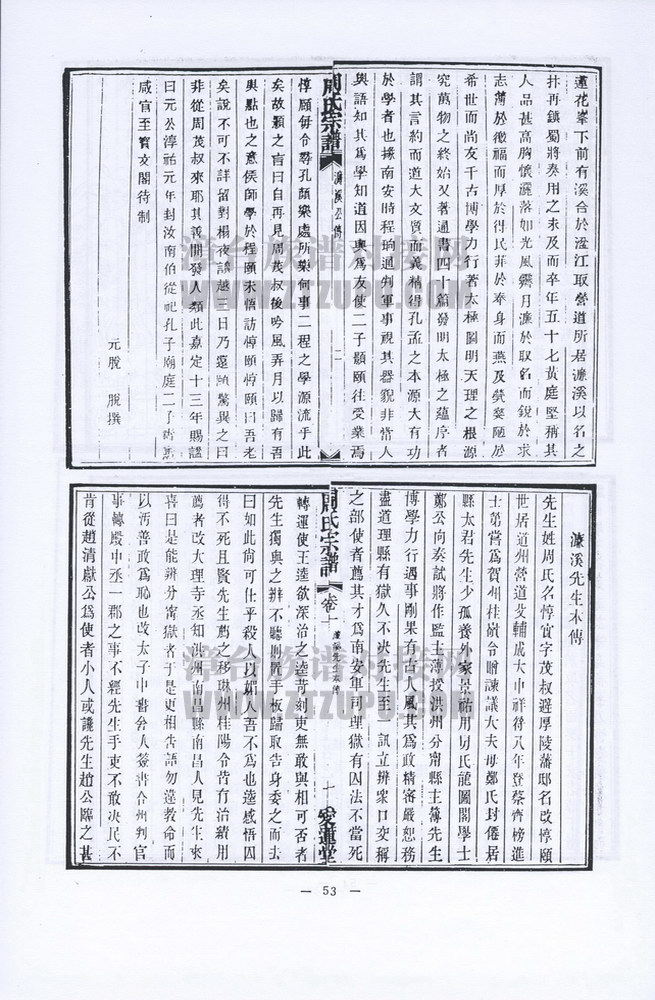 蓮花峯下前有溪合於湓江取營道所居濂溪以名之
抃再鎮蜀將奏用之未及而卒年五十七黃庭堅稱其
人品甚高胸懷灑落如光風霽月濂於取名而銳於求
志薄於徼福而厚於得民菲於奉身而燕及煢嫠陋於
希世而尚友千古博學力行著太極圖明天理之根源
究萬物之終始又著通書四十篇發明太極之蘊序者
謂其言約而道大文質而義精得孔孟之本源大有功
於學者也掾南安時程珦通判軍事視其器貌非常人
與語知其為學知道因與為友使二子顥頤往受業焉
周氏宗譜 濂溪公傳 二
惇頤每令尋孔顏樂處所樂何事二程之學源流乎此
矣故顥之言曰自再見周茂叔後吟風弄月以歸有吾
與點也之意侯師學於程頤未悟訪惇頤惇頤曰吾老
矣說不可不詳留對榻夜談越三日乃還頤驚異之曰
非從周茂叔來耶其善開發人類此嘉定十三年賜謚
曰元公淳祐元年封汝南伯從祀孔子廟庭二子壽燾
咸官至寶文閣待制
元脫 脫撰
濂溪先生本傳
先生姓周氏名惇實字茂叔避厚陵藩邸名改惇頤
世居道州營道父輔成大中祥符八年登蔡齊榜進
士第嘗為賀州桂嶺令贈諫議大夫母鄭氏封僊居
縣太君先生少孤養外家景祐用舅氏龍圖閣學士
鄭公向奏試將作監主簿授洪州分甯縣主簿先生
博學力行遇事剛果有古人風其為政精審嚴恕務
盡道理縣有獄久不决先生至一訊立辨衆口交稱
之部使者薦其才為南安軍司理獄有囚法不當死
周氏宗譜 卷十 濂溪先生本傳 一 愛蓮堂
轉運使王逵欲深治之逵苛刻吏無敢與相可否者
先生獨與之辨不聽則置手板歸取告身委之而去
曰如此尚可仕乎殺人以媚人吾不為也逵感悟囚
得不死且賢先生薦之移郴州桂陽令皆有治績用
薦者改大理寺丞知洪州南昌縣南昌人見先生來
喜曰是能辨分甯獄者于是更相告語勿違教命而
以汚善政為恥也改太子中書舍人簽書合州判官
事轉殿中丞一郡之事不經先生手吏不敢决民不
肯從趙清獻公為使者小人或讒先生趙公臨之甚
— 53 —
漳台族谱对接网
WWW.ZTZUPU.COM
漳台族谱对接网
WWW.ZTZUPU.COM